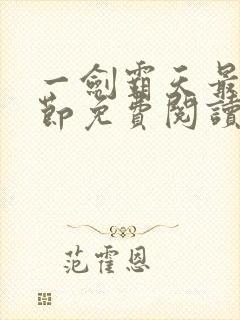 一劍霸天最
節免費閱讀
范霍恩